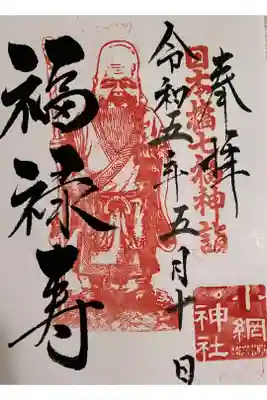 奉拝
日本橋七福神詣
令和五年五月十日
福禄寿
小網
神社